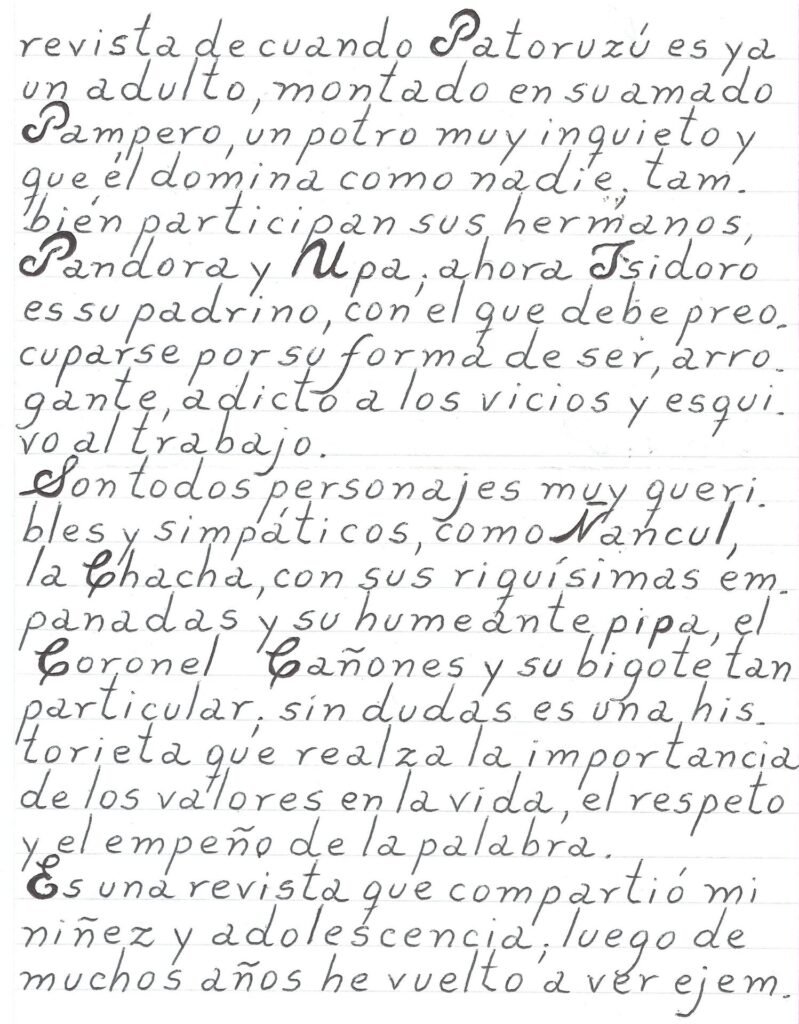 revista de cuando Patoruzú es ya
un adulto, montado en su amado
Pampero, un potro muy inquieto y
que él domina como nadie; tam-
bién participan sus hermanos,
Pandora y Upa; ahora Isidoro
es su padrino, con el que debe preo-
cuparse por su forma de ser, arro-
gante, adicto a los vicios y esqui-
vo al trabajo.
Son todos personajes muy queri-
bles y simpáticos, como Ñancul,
la Chacha, con sus riquísimas em-
panadas y su humeante pipa, el
Coronel Cañones y su bigote tan
particular; sin dudas es una his-
torieta que realza la importancia
de los valores en la vida, el respeto
y el empeño de la palabra.
Es una revista que compartió mi
niñez y adolescencia; luego de
muchos años he vuelto a ver ejem-